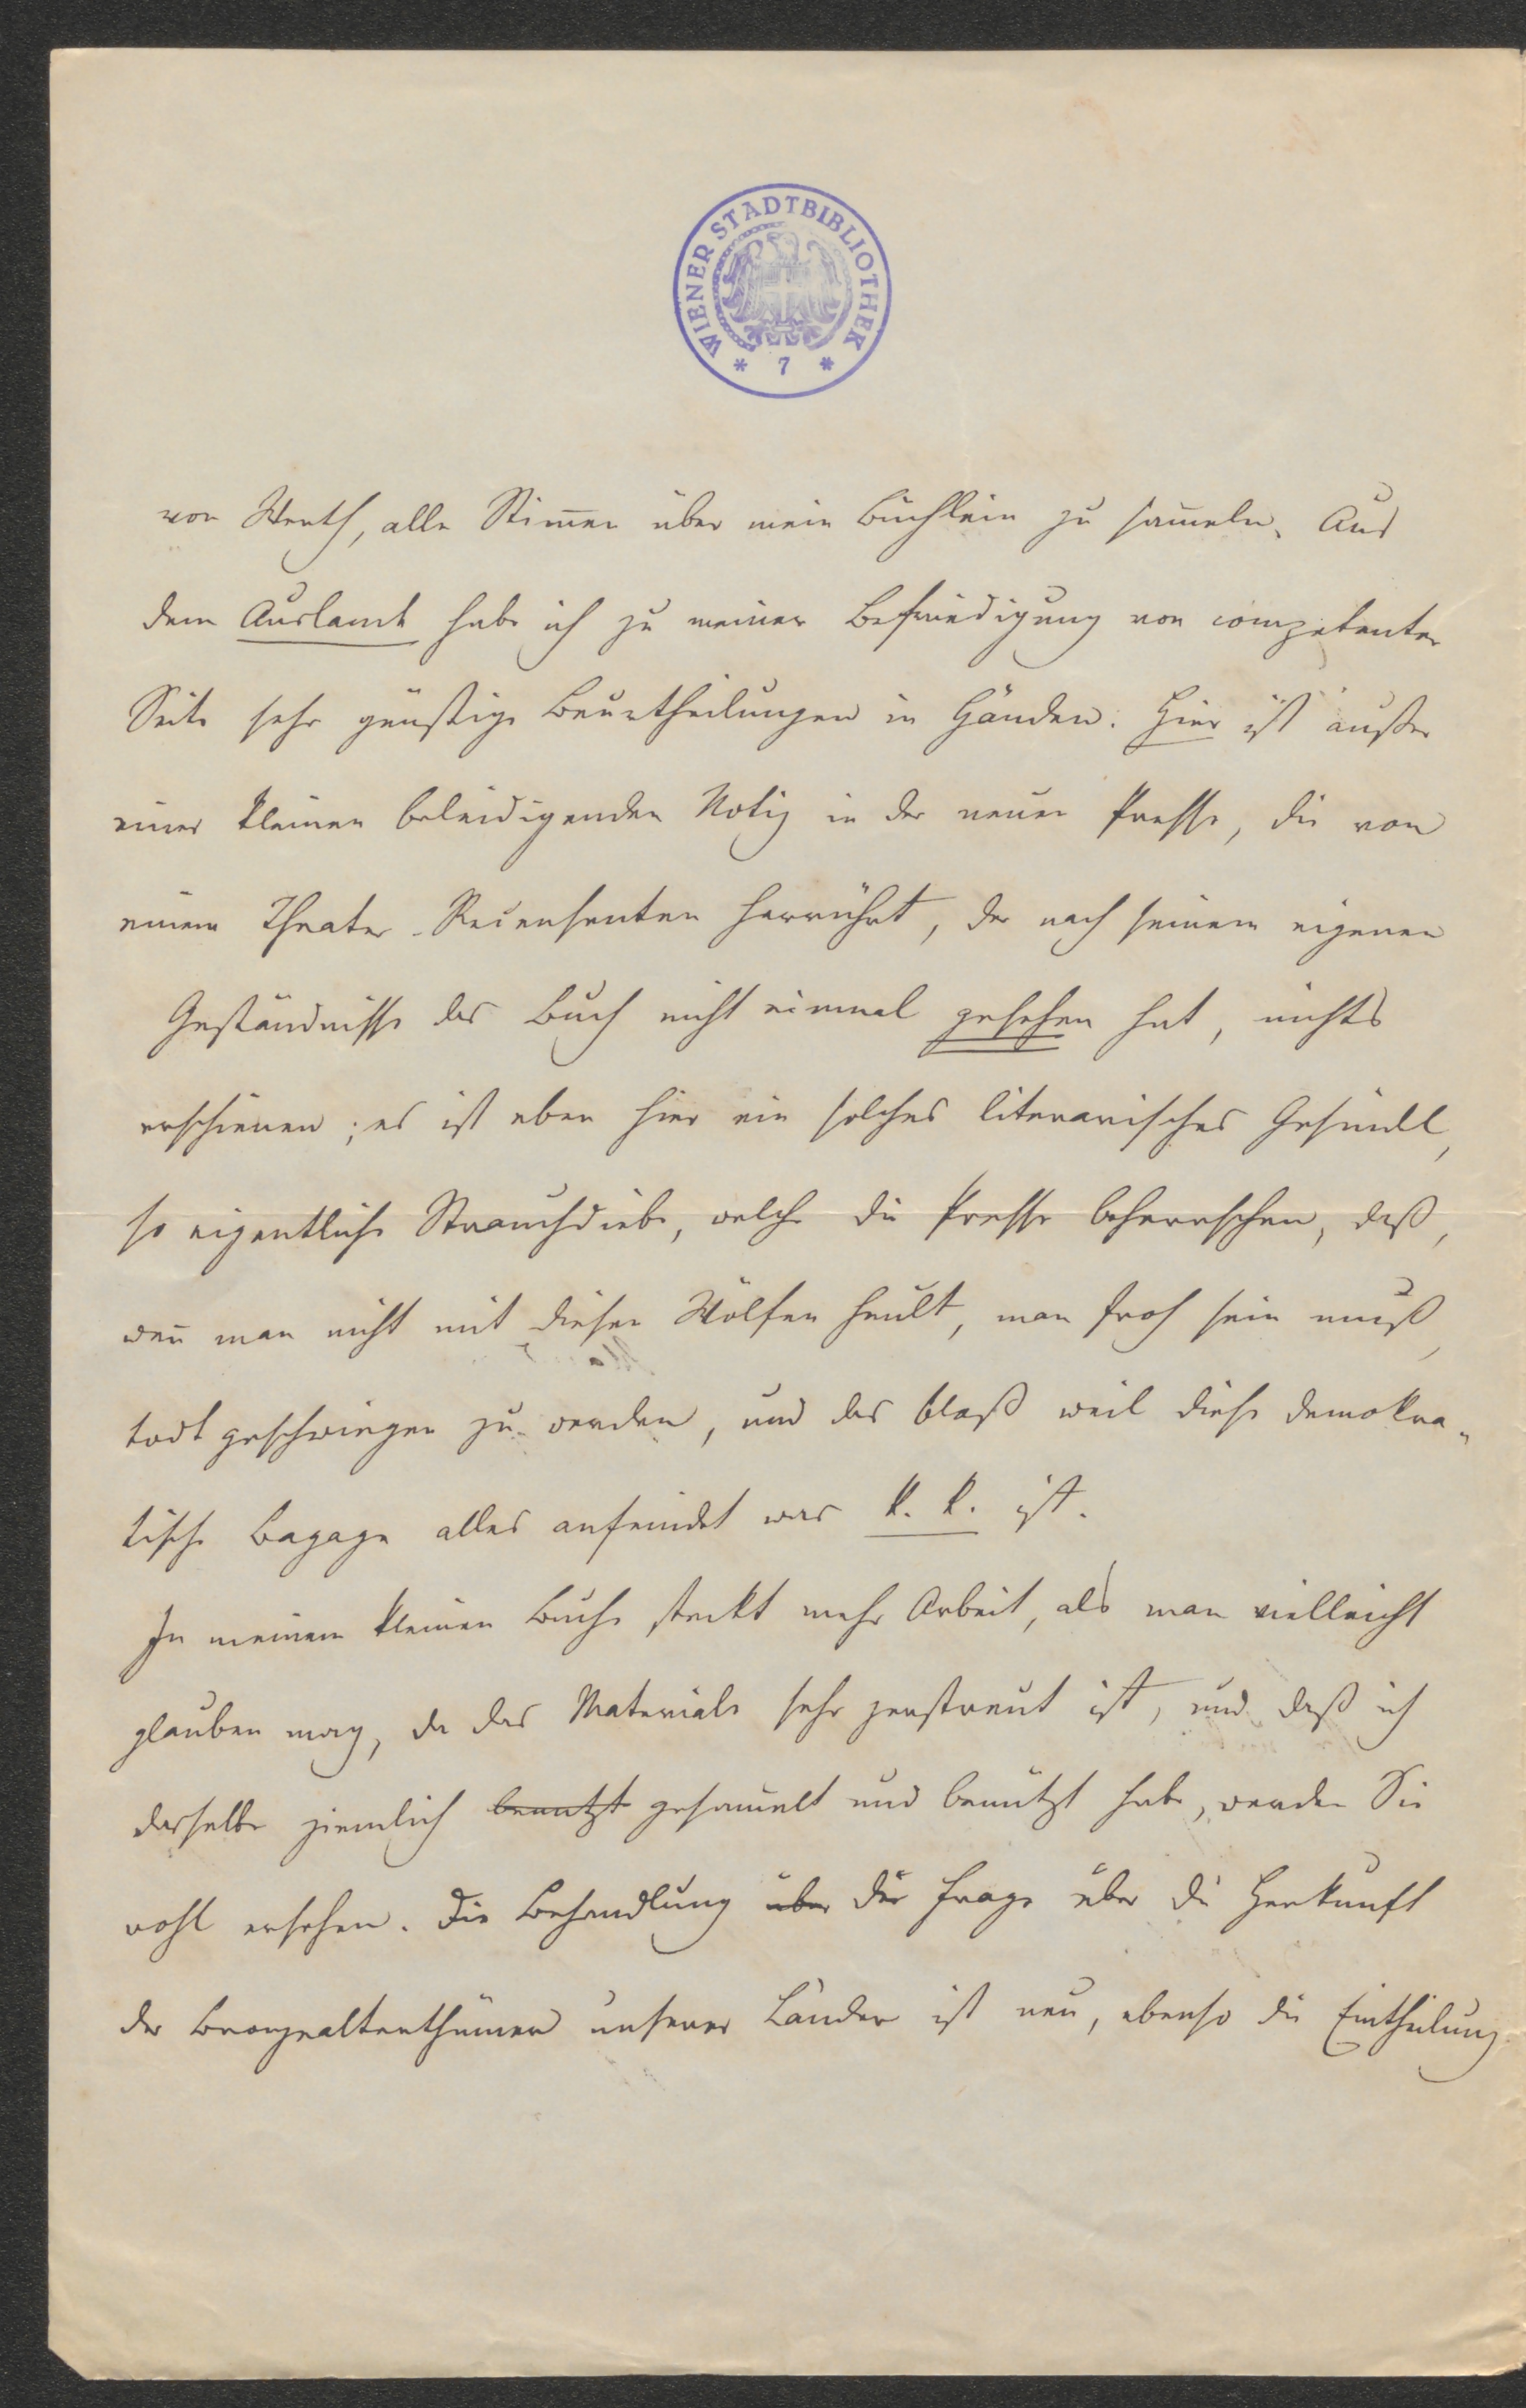 WIENER STADTBIBLIOTHEK
* 7 *
von Werth, alle Stim̅en über mein Büchlein zu sam̅eln. Aus
dem Auslande habe ich zu meiner Befriedigung von competenter
Seite sehr günstige Beurtheilungen in Händen. Hier ist außer
einer kleinen beleidigenden Notiz in der neuen Presse, die von
einem Theater-Recensenten herrührt, der nach seinem eigenen
Geständnisse das Buch nicht einmal gesehen hat, nichts
erschienen; es ist eben hier ein solches literarisches Gesindl,
so eigentliche Strauchdiebe, welche die Presse beherrschen, daß,
wen̅ man nicht mit diesen Wölfen heult, man froh sein muß,
todt geschwiegen zu werden, und das bloß weil diese demokra-
tische Bagage alles anfeindet was k. k. ist.
In meinem kleinen Buche steckt mehr Arbeit, als man vielleicht
glauben mag, da das Materiale sehr zerstreut ist, und daß ich
dasselbe ziemlich benutzt gesam̅elt und benützt habe, werden Sie
wohl ersehen. Die Behandlung über der Frage über die Herkunft
der Bronzealterthümer unserer Länder ist neu, ebenso die Eintheilung